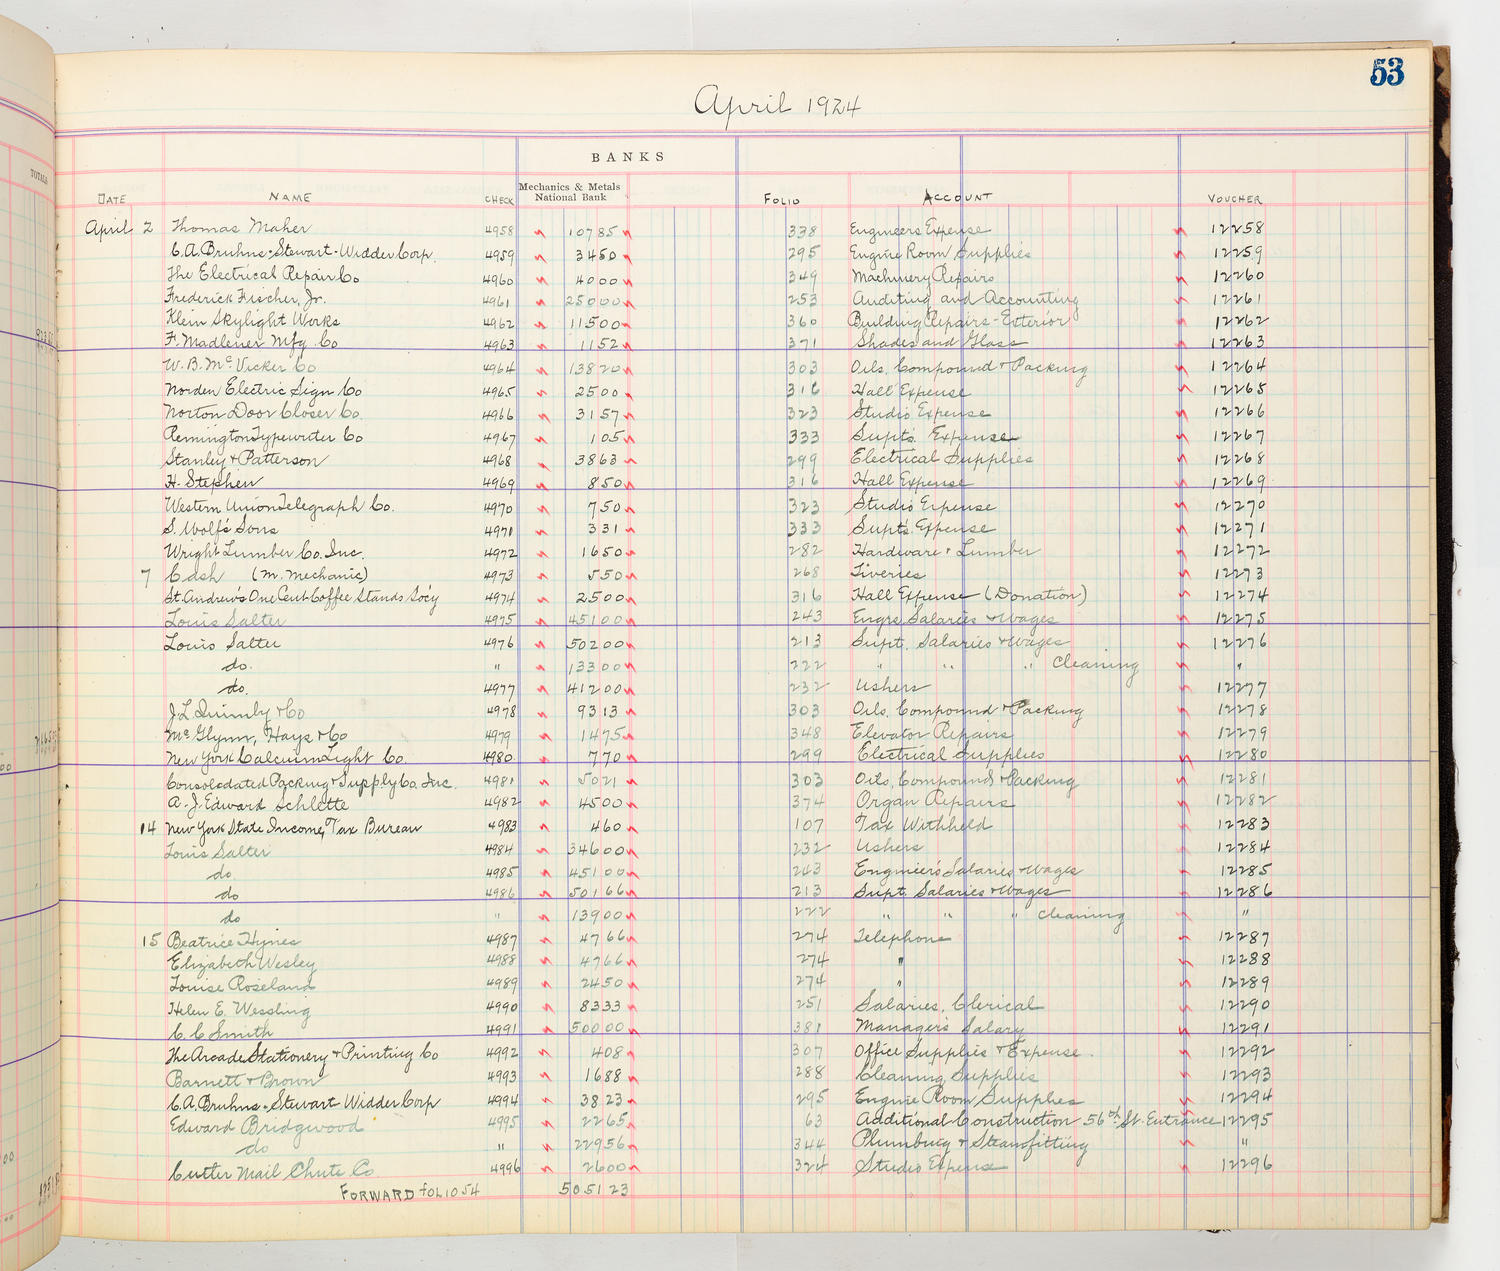 53
April 1924
BANKS
DATE NAME CHECK Mechanics & Metals National Bank FOLIO ACCOUNT VOUCHER
TOTALS
April 2 Thomas Maher 4958 107 85 338 Engineers Expense 12258
C.A. Bruhns-Stewart-Widder Corp. 4959 34 50 295 Engine Room Supplies 12259
The Electrical Repair Co 4960 40 00 349 Machinery Repairs 12260
Frederick Fischer, Jr. 4961 250 00 253 Auditing and Accounting 12261
Klein Skylight Works 4962 115 00 360 Building Repairs-Exterior 12262
F. Madlener Mfg Co 4963 11 52 371 Shades and Glass 12263
W.B. McVicker Co 4964 138 20 303 Oils, Compound + Packing 12264
Norden Electric Sign Co 4965 25 00 316 Hall Expense 12265
Norton Door Closer Co. 4966 31 57 323 Studio Expense 12266
Remington Typewriter Co 4967 1 05 333 Supts. Expense 12267
Stanley + Patterson 4968 38 63 299 Electrical Supplies 12268
H. Stephen 4969 8 50 316 Hall Expense 12269
Western Union Telegraph Co. 4970 7 50 323 Studio Expense 12270
S. Wolf's Sons 4971 3 31 333 Supt's. Expense 12271
Wright Lumber Co. Inc. 4972 16 50 282 Hardware + Lumber 12272
7 Cash (M. Mechanic) 4973 5 50 268 Liveries 12273
St. Andrew's One Cent Coffee Stands Soc'y 4974 25 00 316 Hall Expense (Donation) 12274
Louis Salter 4975 451 00 243 Engrs Salaries + Wages 12275
Louis Salter 4976 502 00 213 Supt. Salaries + Wages 12276
do. " 133 00 222 " " " Cleaning "
do. 4977 412 00 232 Ushers 12277
J.L. Quimby + Co 4978 93 13 303 Oils, Compound + Packing 12278
McGlynn, Hays + Co 4979 14 75 348 Elevator Repairs 12279
New York Calcium Light Co. 4980 7 70 299 Electrical Supplies 12280
Consolodated Packing + Supply Co. Inc. 4981 50 21 303 Oils, Compound + Packing 12281
A. J. Edward Schlette 4982 45 00 374 Organ Repairs 12282
14 New York State Income, Tax Bureau 4983 4 60 107 Tax Withheld 12283
Louis Salter 4984 346 00 232 Ushers 12284
do. 4985 451 00 243 Engineer's Salaries + Wages 12285
do 4986 501 66 213 Supt. Salaries + Wages 12286
do " 139 00 222 " " " Cleaning "
15 Beatrice Hynes 4987 47 66 274 Telephone 12287
Elizabeth Wesley 4988 47 66 274 " 12288
Louise Roseland 4989 24 50 274 " 12289
Helen E. Wessling 4990 83 33 251 Salaries, Clerical 12290
C. C Smith 4991 500 00 381 Manager's Salary 12291
The Arcade Stationery + Printing Co 4992 4 08 307 Office Supplies + Expense. 12292
Barnett + Brown 4993 16 88 288 Cleaning Supplies 12293
C.A. Bruhns-Stewart Widder Corp 4994 38 23 295 Engine Room Supplies 12294
Edward Bridgwood 4995 22 65 63 Additional Construction 56th St. Entrance 12295
do " 229 56 344 Plumbing + Steamfitting "
Cutler Mail Chute Co 4996 26 00 324 Studio Expense 12296
FORWARD FOLIO 54 5051 23